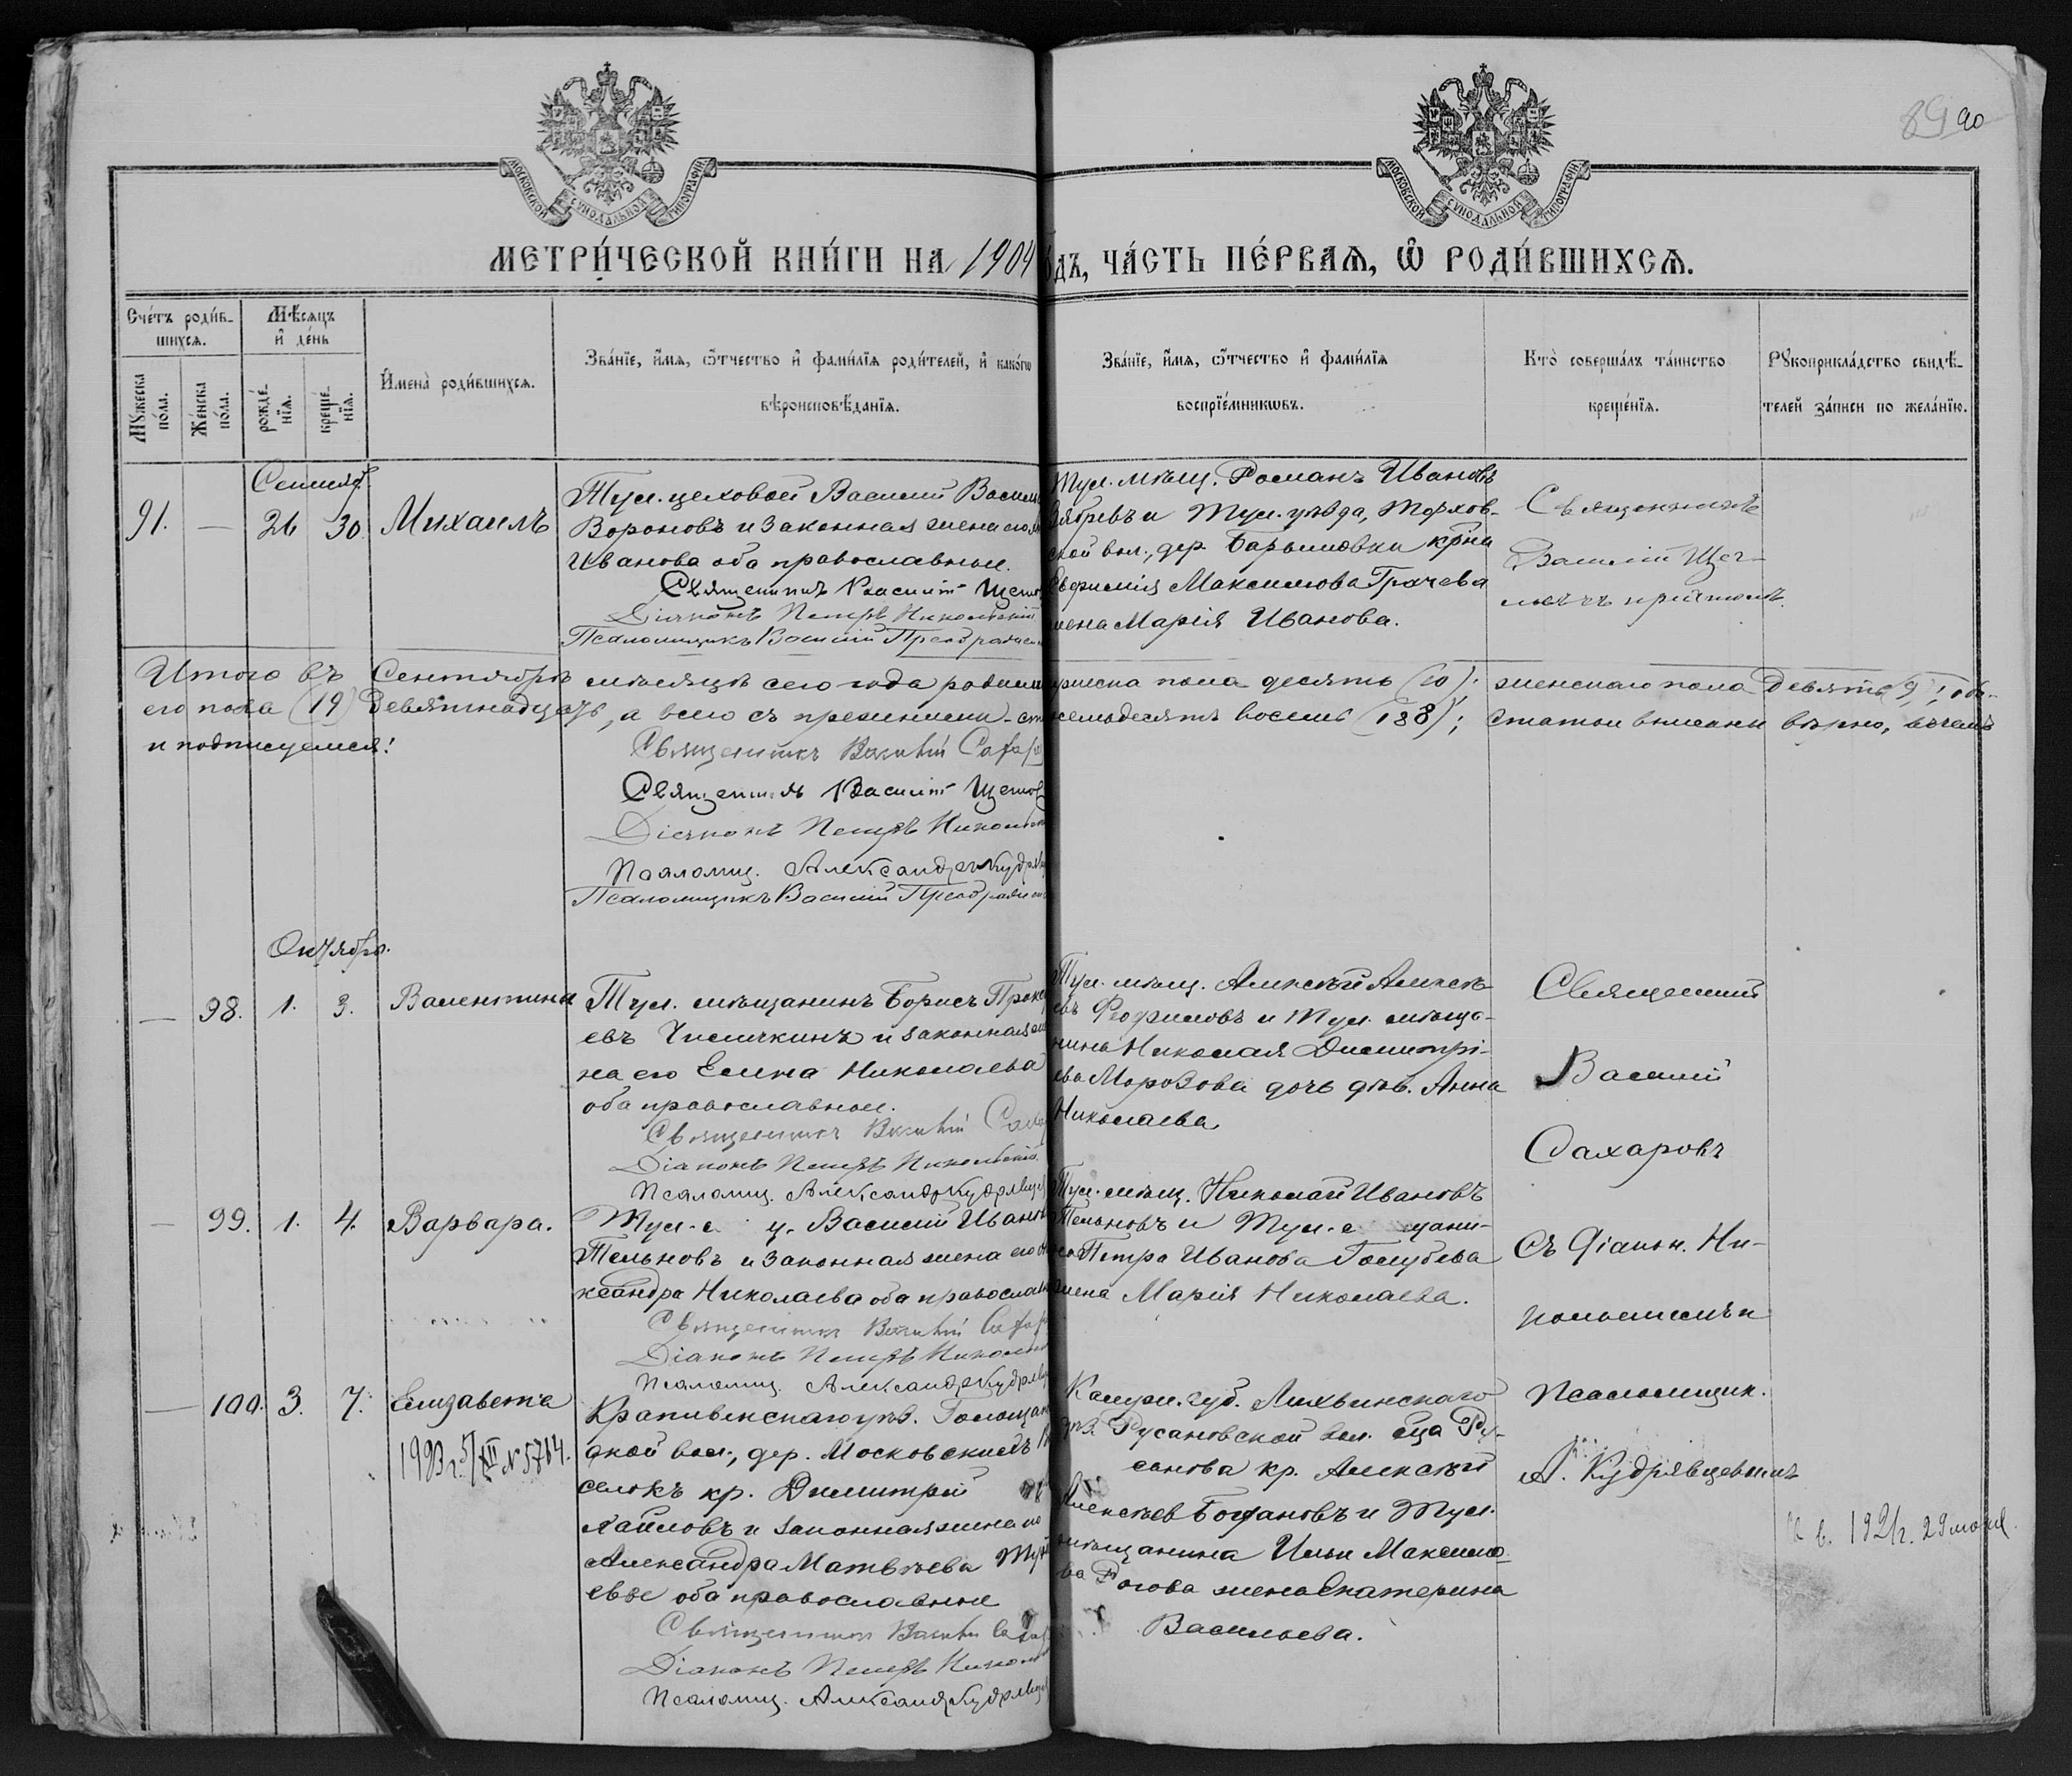 89 90
МОСКОВСКОЙ СѴНОДАЛЬНОЙ ТИПОГРАФІИ
МОСКОВСКОЙ СѴНОДАЛЬНОЙ ТИПОГРАФІИ
МЕТРИ́ЧЕСКОЙ КНИ́ГИ НА 1904 ДЪ, ЧА́СТЬ ПЕ́РВАѦ, Ѽ РОДИ́ВШИХСѦ.
Сче́тъ роди́в-
шихсѧ.
Мѣ́сѧцъ
и҆ де́нь
Мꙋ́жеска
по́ла.
Же́нска
по́ла.
рожде́-
нїѧ.
креще́-
нїѧ.
И҆мена̀ роди́вшихсѧ.
Зва́нїе, и҆́мѧ, ѻ҆́тчество и҆ фамі́лїѧ роди́телей, и҆ како́гѡ
вѣроисповѣ́данїѧ.
Зва́нїе, и҆́мѧ, ѻ҆́тчество и҆ фамі́лїѧ
воспрїе́мникѡвъ.
Кто̀ соверша́лъ та́инство
креще́нїѧ.
Рꙋкоприкла́дство свидѣ́-
телей за́писи по жела́нїю.
Сентяб.
91. — 26 30. Михаилъ
Тул. цеховой Василій Василь
Вороновъ и законная жена его
Иванова оба православные.
Священникъ Василій Щегл
Діаконъ Петръ Никольскій
Псаломщикъ Василій Преображен
Тул. мѣщ. Романъ Ивановъ
Зябревъ и Тул. уѣзда, Торхов-
ской вол., дер. Барыковки крна
Евфимія Максимова Грачева
жена Марія Иванова.
Священникъ
Василій Щег-
ловъ съ причтомъ.
Итого въ Сентябрѣ мѣсяцѣ сего года родили мужеска пола десять (10); женскаго пола девять (9); обо-
его пола (19) девятнадцать, а всего съ прежними - сто восемьдесятъ восемь (188); Статьи вписаны вѣрно, в чемъ
и подписуемся:
Священникъ Василій Сахар
Священникъ Василій Щегло
Діаконъ Петръ Никольск
Псаломщ. Александръ Кудрявц
Псаломщикъ Василій Преображен
Октябрь.
— 98. 1. 3. Валентина
Тул. мѣщанинъ Борисъ Прок
евъ Чисычкинъ и законная же
на его Елена Николаева
оба православные.
Священникъ Василій Сахар
Діаконъ Петръ Никольскій
Псаломщ. Александръ Кудрявце
Тул. мѣщ. Алексѣй Алексѣ-
евъ Феофиловъ и Тул. мѣща-
нина Николая Димитрі-
ева Морозова дочь дѣв. Анна
Николаева
Священникъ
Василій
Сахаровъ
— 99. 1. 4. Варвара.
Василій Иванов
Тельновъ и законная жена его Але
ксандра Николаева оба православн
Священникъ Василій Сахар
Діаконъ Петръ Никольск
Псаломщ. Александръ Кудрявц
Тул. мѣщ. Николай Ивановъ
Тельновъ и Тул. щани-
на Петра Иванова Голубева
жена Марія Николаева.
Съ Діакон. Ни-
кольскимъ и
— 100. 3. 7. Елизавета
5/XII № 5764.
Крапивенскаго уѣз. Голощап
ской вол., дер. Московскихъ
селокъ кр. Димитрій
хайловъ и законная жена его
Александра Матвѣева
евы оба православные
Священникъ Василій Сахар
Діаконъ Петръ Никольск
Псаломщ. Александръ Кудрявце
Калуж. губ. Лихвинскаго
уѣз. Русановской вол. сца Ру-
санова кр. Алексѣй
Алексѣев и Тул.
мѣщанина Ильи Максимо-
ва Рогова жена Екатерина
Васильева.
Псаломщик.
А. Кудрявцевымъ